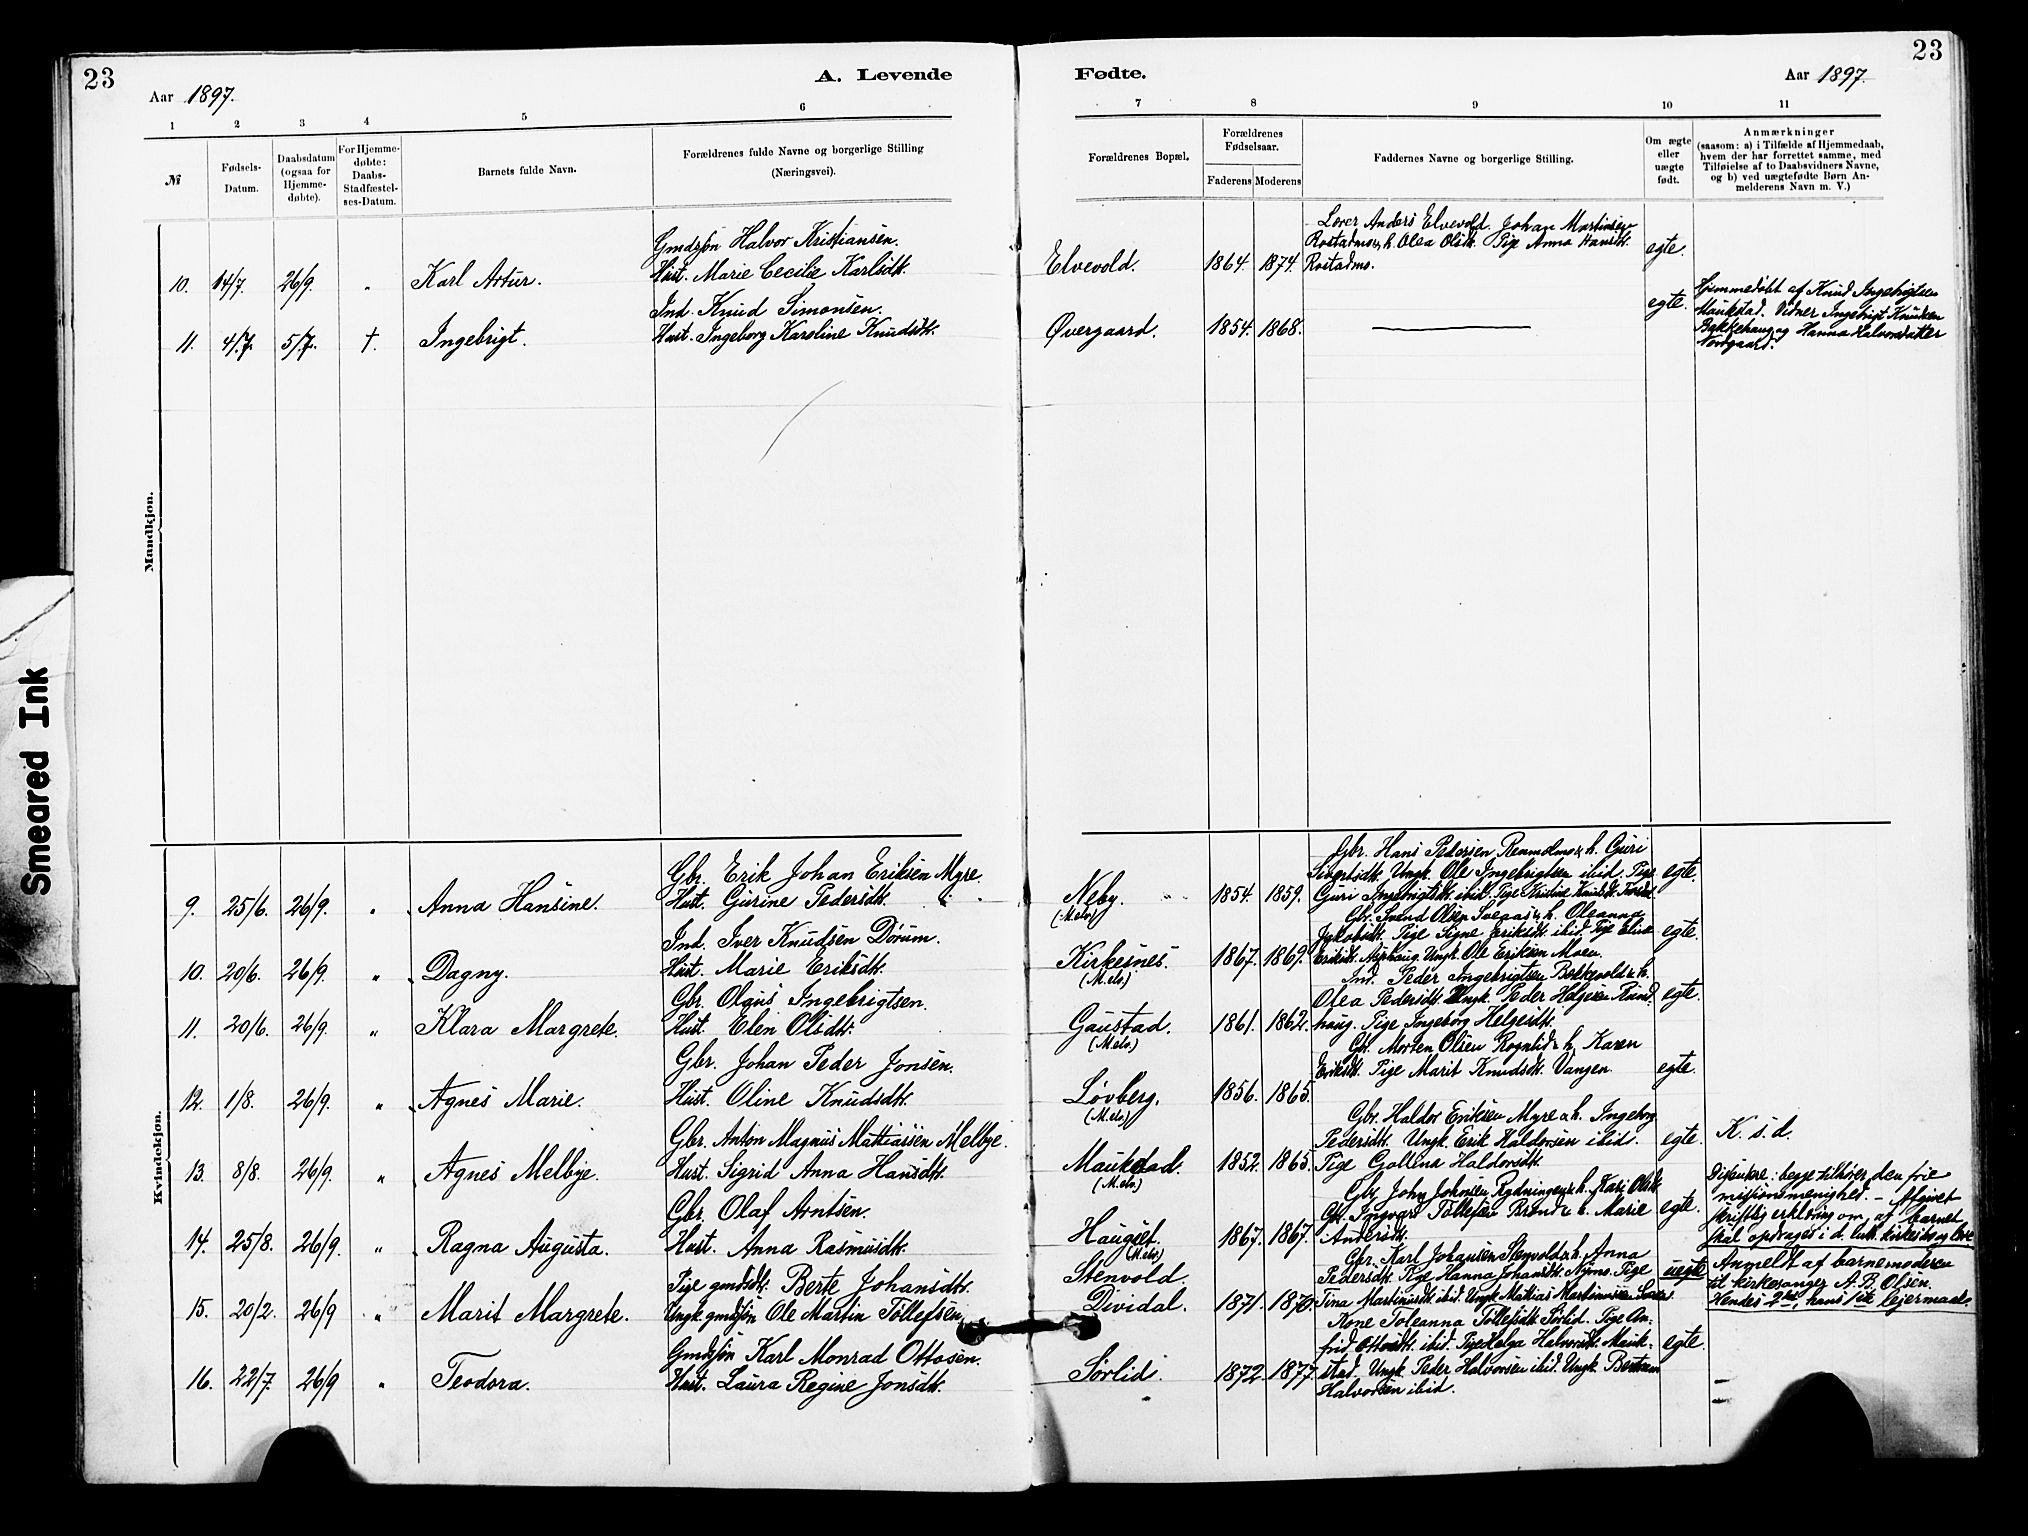 23
A. Levende
Fødte.
23
Aar 1897.
Aar 1897.
1 2 3 4 5 6
7 8 9 10 11
№
Fødsels-Datum.
Daabsdatum (ogsaa for Hjemme-døbte).
For Hjemme-døbte: Daabs-Stadfæstel-ses-Datum.
Barnets fulde Navn.
Forældrenes fulde Navne og borgerlige Stilling (Næringsvei).
Forældrenes Bopæl.
Forældrenes Fødselsaar.
Faderens
Moderens
Faddernes Navne og borgerlige Stilling.
Om ægte eller uægte født.
Anmærkninger
(saasom: a) i Tilfælde af Hjemmedaab, hvem der har forrettet samme, med Tilføielse af to Daabsvidners Navne, og b) ved uægtefødte Børn Anmelderens Navn m. V.)
Mandkjøn.
10. 14/7. 26/9. „ Karl Artur.
Gmdsjøn Halvor Kristiansen.
Hust. Marie Cecilie Karlsdtt.
Elvevold. 1864. 1874.
Lærer Anders Elvevold. Johan Martinsen
Rostadmo & h. Olea Olsdt. Pige Anna Hansdt.
Rostadmo.
egte.
11. 4/7. 5/7. †. Ingebrigt.
Ind. Knud Simonsen.
Hust. Ingeborg Karoline Knudsdtt.
Øvergaard. 1854. 1868.
egte.
Hjemmedøbt af Knud Ingebrigtsen
Maukstad. Vidner Ingebrigt Knudsen
Bakkehaug og Hanna Halvorsdatter
Nordgaard.
Kvindekjøn.
9. 25/6. 26/9. „ Anna Hansine.
Gbr. Erik Johan Eriksen Myre.
Hust. Gurine Pedersdtt.
Neby.
(M.elv.)
1854. 1859.
Gbr. Hans Pedersen Renmelmo & h. Guri
Sivertsdt. Ungk. Ole Ingebrigtsen ibid. Pige
Guri Ingebrigtsdt. ibid. Pige Kristine Knudsdt.
egte.
10. 20/6. 26/9. „ Dagny.
Ind. Iver Knudsen Dørum.
Hust. Marie Eriksdtt.
Kirkesnes.
(M.elv.)
1867. 1869.
Gbr. Svend Olsen & h. Oleanna
Jakobsdt. Pige Signe Eriksdt. ibid. Pige Elise
Eriksdt. Asphaug. Ungk. Ole Eriksen Moen.
egte.
11. 20/6. 26/9. „ Klara Margrete.
Gbr. Olaus Ingebrigtsen.
Hust. Elen Olsdtt.
Gaustad.
(M.elv.)
1861. 1862.
Ind. Peder Ingebrigtsen & h.
Olea Pedersdt. Ungk. Peder Helgesen Rund-
haug. Pige Ingeborg Helgesdt.
egte.
12. 1/8. 26/9. „ Agnes Marie.
Gbr. Johan Peder Jonsen.
Hust. Oline Knudsdtt.
Løvberg.
(M.elv.)
1856. 1865.
Gbr. Morten Olsen Rognlid & h. Karen
Eriksdt. Pige Marit Knudsdt. Vangen.
egte.
13. 8/8. 26/9. „ Agnes Melbye.
Gbr. Anton Magnus Mattiassen Melbye.
Hust. Sigrid Anna Hansdtt.
Maukstad.
(M.elv.)
1852. 1865.
Gbr. Haldor Eriksen Myre & h. Ingeborg
Pedersdt. Ungk. Erik Haldorsen ibid.
Pige Gollina Haldorsdt.
egte.
K. s. d.
14. 25/8. 26/9. „ Ragna Augusta.
Gbr. Olaf Arntsen.
Hust. Anna Rasmusdtt.
Haugset.
(M.elv.)
1867. 1867.
Gbr. John Johnsen Rydningen & h. Kari Olsdt.
Gbr. Ingvart Tollefsen Brand & h. Marie
Andersdt.
egte.
Dissentere: begge tilhører den frie
missionsmenighed. – Afgivet
skriftlig erklæring om, at barnet
skal opdrages i d. luth. kirkes
15. 20/2. 26/9 „ Marit Margrete.
Pige gmdsdt. Berte Johansdtt.
Ungk. gmdsjøn Ole Martin Tollefsen
Stenvold.
Dividal.
1871. 1870.
Gbr. Karl Johansen Stenvold & h. Anna
Pedersdt. Pige Hanna Johansdt. Nymo. Pige
Tina Martinusdt. ibid. Ungk. Mathias Martinussen
uegte
Anmeldt af barnemoderen
til kirkesanger A. B. Olsen.
Hendes 2det, hans 1ste lejermaal.
16. 22/7. 26/9 „ Teodora.
Gmdsjøn Karl Monrad Ottosen.
Hust. Laura Regine Jonsdtt.
Sørlid. 1872. 1877.
Kone Toleanna Tollefsdt. Sørlid. Pige An-
frid Ottosdt. ibid. Pige Helga Halvorsdt. Mauk-
stad. Ungk. Peder Halvorsen ibid. Ungk. Berteam
Halvorsen ibid.
egte.
Smeared Ink